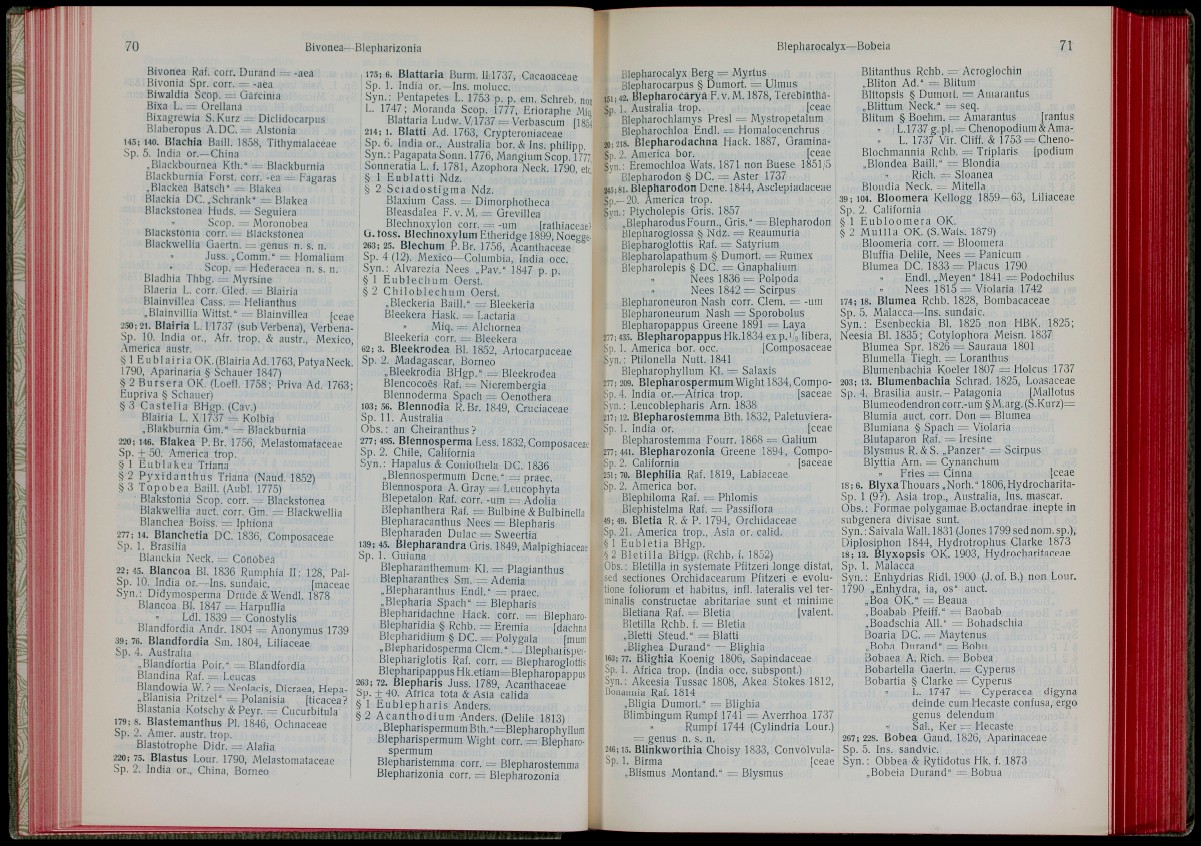 70
Bivonea—Blepharizonia
Bivonea Raf. corr. Durand = -aea
Bivonia Spr. corr. = -aea
Biwaldia Scop. = Garcinia
Bixa L. = Orellana
Bixagrewia S. Kurz = Diclidocarpus
Blaberopus A.DC. = Alstonia
145; 140. Blachia Baill. 1858, Tithymalaceae
Sp. 5. India or.—China
„Blackbournea Kth.“ = Blackburnia
Blackburnia Forst. corr. -ea = Fagaras
„Blackea Batsch“ = Blakea
Blackia DC. „Schrank“ = Blakea
Blackstonea Huds. = Seguiera
„ Scop. = Moronobea
Blackstonia corr. = Blackstonea
Blackwellia Gaertn. = genus n. s. n.
„ Juss. „Comm.“ = Homalium
„ Scop. = Hederacea n. s. n.
Bladhia Thbg. = Myrsine
Blaeria L. corr. Gled. = Blairia
Blainvillea Cass. = Helianthus
„Blainvillia Wittst.“ = Blainvillea [ceae
250; 21. Blairia L. I 1737 (sub Verbena), Verbena-
Sp. 10. India or., Afr. trop. & austr., Mexico,
America austr.
§ 1 Eublairia OK. (Blairia Ad. 1763, Patya Neck.
1790, Aparinaria § Schauer 1847)
§ 2 Bursera OK. (Loefl. 1758; Priva Ad. 1763;
Eupriva § Schauer)
§ 3 Castelia BHgp. (Cav.)
Blairia L. X 1737 = Kolbia
„Blakburnia Gm.“ = Blackburnia
220; 146. Blakea P. Br. 1756, Melastomataceae
Sp. ± 50. America trop.
§ 1 Eublakea Triana
§ 2 Pyxidanthus Triana (Naud. 1852)
§ 3 Topobea Baill. (Aubl. 1775)
Blakstonia Scop. corr. = Blackstonea
Blakwellia auct. corr. Gm. = Blackwellia
Blanchea Boiss. = Iphiona
277; 14. Blanchetia DC. 1836, Composaceae
Sp. 1. Brasilia
Blanckia Neck. = Conobea
22; 45. Blancoa Bl. 1836 Rumphia II: 128, Pal-
Sp. 10. India or.—Ins. sundaic. [maceae
Syn.: Didymosperma Drude & Wendl. 1878
Blancoa Bl. 1847 = Harpullia
„ Ldl. 1839 = Conostylis
Blandfordia Andr. 1804 = Anonymus 1739
39; 76. Blandfordia Sm. 1804, Liliaceae
Sp. 4. Australia
„Blandfortia Poir.“ = Blandfordia
Blandina Raf. = Leucas
Blandowia W. ? = Neolacis, Dicraea, Hepa-
„Blanisia Pritzel“ = Polanisia [ticacea?
Blastania Kotschy & Peyr. = Cucurbitula
179; 8. Blastemanthus Pl. 1846, Ochnaceae
Sp. 2. Amer. austr. trop.
Blastotrophe Didr. = Alafia
220; 75. Blastus Lour. 1790, Melastomataceae
Sp. 2. India or., China, Borneo
175; 6. Blattaria Burm. II 1737, Cacaoaceae
Sp. 1. India or.—Ins. molucc.
Syn.: Pentapetes L. 1753 p. p. em. Schreb. non
L. 1747; Moranda Scop. 1777, Erioraphe Miq.
Blattaria Ludw. V, 1737 = Verbascum
214; 1. Blatti Ad. 1763, Crypteroniaceae
Sp. 6. India or., Australia bor. & Ins. philipp.
Syn.: Pagapata Sonn. 1776, Mangium Scop. 1777,
Sonneratia L. f. 1781, Azophora Neck. 1790, etc.
§ 1 Eublatti Ndz.
§ 2 Sciadostigma Ndz.
Blaxium Cass. = Dimorphotheca
Bleasdalea F. v. M. = Grevillea
Blechnoxylon corr. = -um [rathiaceae?
G. foss. Blechnoxylum Etheridge 1899, Noegge-
263; 25. Blechum P. Br. 1756, Acanthaceae
Sp. 4 (12). Mexico—Columbia, India occ.
Syn.: Alvarezia Nees „Pav.“ 1847 p. p.
§ 1 Eublechum Oerst.
§ 2 Chiloblechum Oerst.
„Bleckeria Baill.“ = Bleekeria
Bleekera Hask. = Lactaria
„ Miq. = Alchornea
Bleekeria corr. = Bleekera
62; 3. Bleekrodea Bl. 1852, Artocarpaceae
Sp. 2. Madagascar, Borneo
„Bleekrodia BHgp.“ = Bleekrodea
Blencocoës Raf. = Nierembergia
Blennoderma Spach = Oenothera
103; 56. Blennodia R. Br. 1849, Cruciaceae
Sp. 11. Australia
Obs.: an Cheiranthus?
277; 495. Blennosperma Less. 1832, Composaceae
Sp. 2. Chile, California
Syn.: Hapalus & Coniothela DC. 1836
„Blennospermum Dcne.“ = praec.
Blennospora A. Gray = Leucophyta
Blepetalon Raf. corr. -um = Adolia
Blephanthera Raf. = Bulbine & Bulbinella
Blepharacanthus Nees = Blepharis
Blepharaden Dulac = Sweertia
139; 45. Blepharandra Gris. 1849, Malpighiaceae
Sp. 1. Guiana
Blepharanthemum Kl. = Plagianthus
Blepharanthes Sm. = Adenia
„Blepharanthus Endl.“ = praec.
„Blepharia Spach“ = Blepharis
Blepharidachne Hack. corr. = Blepharo-
Blepharidia § Rchb. = Eremia [dachna
Blepharidium § DC. = Polygala [mum
„Blepharidosperma Clem.“ = Blepharisper-
Blephariglotis Raf. corr. = Blepharoglottis
Blepharipappus Hk. etiam = Blepharopappus
263; 72. Blepharis Juss. 1789, Acanthaceae
Sp. ± 40. Africa tota & Asia calida
§ 1 Eublepharis Anders.
§ 2 Acanthodium Anders. (Delile 1813)
„Blepharispermum Bth.“ = Blepharophyllum
Blepharispermum Wight corr. = Blepharo-
spermum
Blepharistemma corr. = Blepharostemma
Blepharizonia corr. = Blepharozonia
Blepharocalyx—Bobeia
71
Blepharocalyx Berg = Myrtus
Blepharocarpus § Dumort. = Ulmus
151; 42. Blepharocarya F. v. M. 1878, Terebintha-
Sp. 1. Australia trop. [ceae
Blepharochlamys Presl = Mystropetalum
Blepharochloa Endl. = Homalocenchrus
20; 218. Blepharodachna Hack. 1887, Gramina-
Sp. 2. America bor. [ceae
Syn.: Eremochloa Wats. 1871 non Buese 1851/5
Blepharodon § DC. = Aster 1737
245; 81. Blepharodon Dcne. 1844, Asclepiadaceae
Sp. — 20. America trop.
Syn.: Ptycholepis Gris. 1857
„Blepharodus Fourn., Gris.“ = Blepharodon
Blepharoglossa § Ndz. = Reaumuria
Blepharoglottis Raf. = Satyrium
Blepharolapathum § Dumort. = Rumex
Blepharolepis § DC. = Gnaphalium
„ Nees 1836 = Polpoda
„ Nees 1842 = Scirpus
Blepharoneuron Nash corr. Clem. = -um
Blepharoneurum Nash = Sporobolus
Blepharopappus Greene 1891 = Laya
277; 435. Blepharopappus Hk. 1834 ex p. libera,
Sp. 1. America bor. occ. [Composaceae
Syn.: Ptilonella Nutt. 1841
Blepharophyllum Kl. = Salaxis
277; 209. Blepharospermum Wight 1834, Compo-
Sp. 4. India or.—Africa trop. [saceae
Syn.: Leucoblepharis Arn. 1838
217; 12. Blepharostemma Bth. 1832, Paletuviera-
Sp. 1. India or. [ceae
Blepharostemma Fourr. 1868 = Galium
277; 441. Blepharozonia Greene 1894, Compo-
Sp. 2. California [saceae
251; 70. Blephilia Raf. 1819, Labiaceae
Sp. 2. America bor.
Blephiloma Raf. = Phlomis
Blephistelma Raf. = Passiflora
49; 49. Bletia R. & P. 1794, Orchidaceae
Sp. 21. America trop., Asia or. calid.
§ 1 Eubletia BHgp.
§ 2 Bletilla BHgp. (Rchb. f. 1852)
Obs.: Bletilla in systemate Pfitzeri longe distat,
sed sectiones Orchidacearum Pfitzeri e evolu-
tione foliorum et habitus, infl. lateralis vel ter-
minalis constructae abritariae sunt et minime
Bletiana Raf. = Bletia [valent.
Bletilla Rchb. f. = Bletia
„Bletti Steud.“ = Blatti
„Blighea Durand“ = Blighia
163; 77. Blighia Koenig 1806, Sapindaceae
Sp. 1. Africa trop. (India occ. subspont.)
Syn.: Akeesia Tussac 1808, Akea Stokes 1812,
Bonannia Raf. 1814
„Bligia Dumort.“ = Blighia
Blimbingum Rumpf 1741 = Averrhoa 1737
„ Rumpf 1744 (Cylindria Lour.)
= genus n. s. n.
246; 15. Blinkworthia Choisy 1833, Convolvula-
Sp. 1. Birma [ceae
„Blismus Montand.“ = Blysmus
Blitanthus Rchb. = Acroglochin
„Bliton Ad.“ = Blitum
Blitopsis § Dumort. = Amarantus
„Blittum Neck.“ = seq.
Blitum § Boehm. = Amarantus [rantus
„ L. 1737 g. pl. = Chenopodium & Ama-
„ L. 1737 Vir. Cliff. & 1753 = Cheno-
Blochmannia Rchb. = Triplaris [podium
„Blondea Baill.“ = Blondia
„ Rich. = Sloanea
Blondia Neck. = Mitella
39; 104. Bloomera Kellogg 1859—63, Liliaceae
Sp. 2. California
§ 1 Eubloomera OK.
§ 2 Muilla OK. (S. Wats. 1879)
Bloomeria corr. = Bloomera
Bluffia Delile, Nees = Panicum
Blumea DC. 1833 = Placus 1790
„ Endl. „Meyen“ 1841 = Podochilus
„ Nees 1815 = Violaria 1742
174; 18. Blumea Rchb. 1828, Bombacaceae
Sp. 5. Malacca—Ins. sundaic.
Syn.: Esenbeckia Bl. 1825 non HBK. 1825;
Neesia Bl. 1835; Cotylophora Meisn. 1837
Blumea Spr. 1826 = Sauraua 1801
Blumella Tiegh. = Loranthus
Blumenbachia Koeler 1807 = Holcus 1737
203; 13. Blumenbachia Schrad. 1825, Loasaceae
Sp. 4. Brasilia austr. - Patagonia [Mallotus
Blumeodendron corr. -um § M. arg. (S. Kurz) =
Blumia auct. corr. Don = Blumea
Blumiana § Spach = Violaria
Blutaparon Raf. = Iresine
Blysmus R. & S. „Panzer“ = Scirpus
Blyttia Arn. = Cynanchum
„ Fries = Cinna [ceae
18; 6. Blyxa Thouars „Norh.“ 1806, Hydrocharita-
Sp. 1 (9?). Asia trop., Australia, Ins. mascar.
Obs.: Formae polygamae B. octandrae inepte in
subgenera divisae sunt.
Syn.: Saivala Wall. 1831 (Jones 1799 sed nom. sp.),
Diplosiphon 1844, Hydrotrophus Clarke 1873
18; 13. Blyxopsis OK. 1903, Hydrocharitaceae
Sp. 1. Malacca
Syn.: Enhydrias Ridl. 1900 (J. of. B.) non Lour.
1790 „Enhydra, ia, os“ auct.
„Boa OK.“ = Beaua
„Boabab Pfeiff.“ = Baobab
„Boadschia All.“ = Bohadschia
Boaria DC. = Maytenus
„Boba Durand“ = Bobu
Bobaea A. Rich. = Bobea
Bobartella Gaertn. = Cyperus
Bobartia § Clarke = Cyperus
„ L. 1747 = Cyperacea digyna
deinde cum Hecaste confusa, ergo
genus delendum
„ Sal., Ker = Hecaste
267; 228. Bobea Gaud. 1826, Aparinaceae
Sp. 5. Ins. sandvic.
Syn.: Obbea & Rytidotus Hk. f. 1873
„Bobeia Durand“ = Bobua